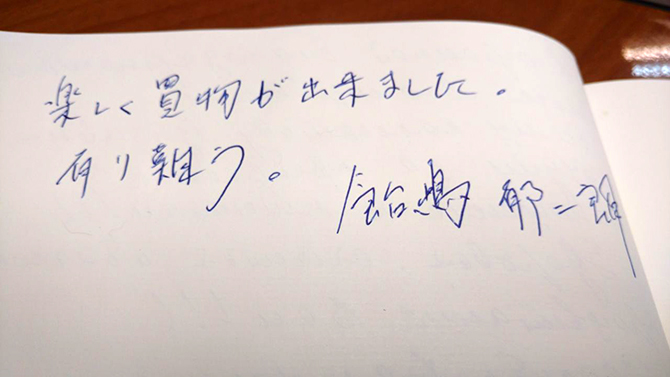 楽しく買物が出来ました。
有り難う。
飴嶋 郁二郎